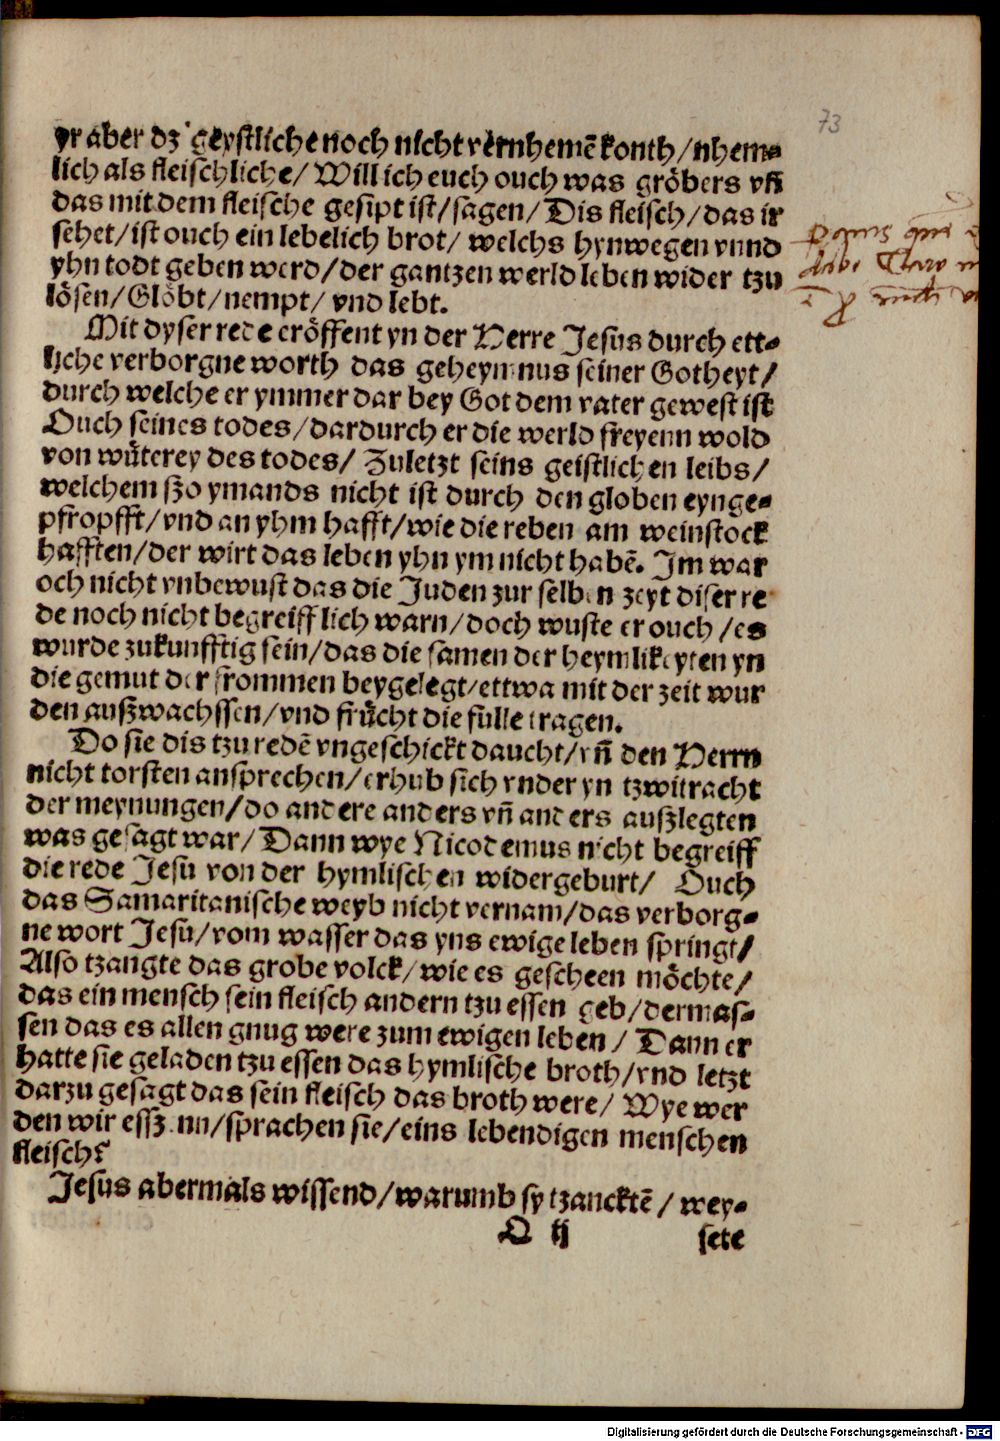 73
yr aber dz geystliche noch nicht vernhemē konth/nhem-
lich als fleischliche/ Will ich euch ouch was gröbers vñ
das mit dem fleische gesipt ist/sagen/ Dis fleisch/das ir
sehet/ist ouch ein lebelich brot/ welchs hynwegen vnnd
yhn todt geben werd/der gantzen werld leben wider tzu
lösen/Glöbt/nempt/ vnd lebt.
Mit dyser rede eröffent yn der Herre Jesus durch ett-
liche verborgne worth das geheymnus seiner Gotheyt/
durch welche er ymmer dar bey Got dem vater gewest ist
Ouch seines todes/dardurch er die werld freyenn wold
von wůterey des todes/ Zuletzt seins geistlichen leibs/
welchem szo ymands nicht ist durch den globen eynge-
pfropfft/vnd an yhm hafft/wie die reben am weinstock
hafften/der wirt das leben yhn ym nicht habē. Im war
och nicht vnbewust das die Juden zur selben zeyt diser re
de noch nicht begreifflich warn/doch wuste er ouch/es
wurde zukunfftig sein/das die samen der heymlikeyten yn
die gemut der frommen beygelegt/ettwa mit der zeit wur
den auszwachssen/vnd frůcht die fülle tragen.
Do sie dis tzu redē vngeschickt daucht/vñ den Herrn
nicht torsten ansprechen/erhub sich vnder yn tzwitracht
der meynungen/do andere anders vñ anders auszlegten
was gesagt war/ Dann wye Nicodemus nicht begreiff
die rede Jesu von der hymlischen widergeburt/ Ouch
das Samaritanische weyb nicht vernam/das verborg-
ne wort Jesu/vom wasser das yns ewige leben springt/
Also tzangte das grobe volck/wie es gescheen möchte/
das ein mensch sein fleisch andern tzu essen geb/dermas-
sen das es allen gnug were zum ewigen leben/ Dann er
hatte sie geladen tzu essen das hymlische broth/vnd letzt
darzu gesagt das sein fleisch das broth were/ Wye wer
den wir essz nn/sprachen sie/eins lebendigen menschen
fleisch?
Jesus abermals wissend/warumb sy tzancktē/ wey-
O ij sete
Digitalisierung gefördert durch die Deutsche Forschungsgemeinschaft - DFG